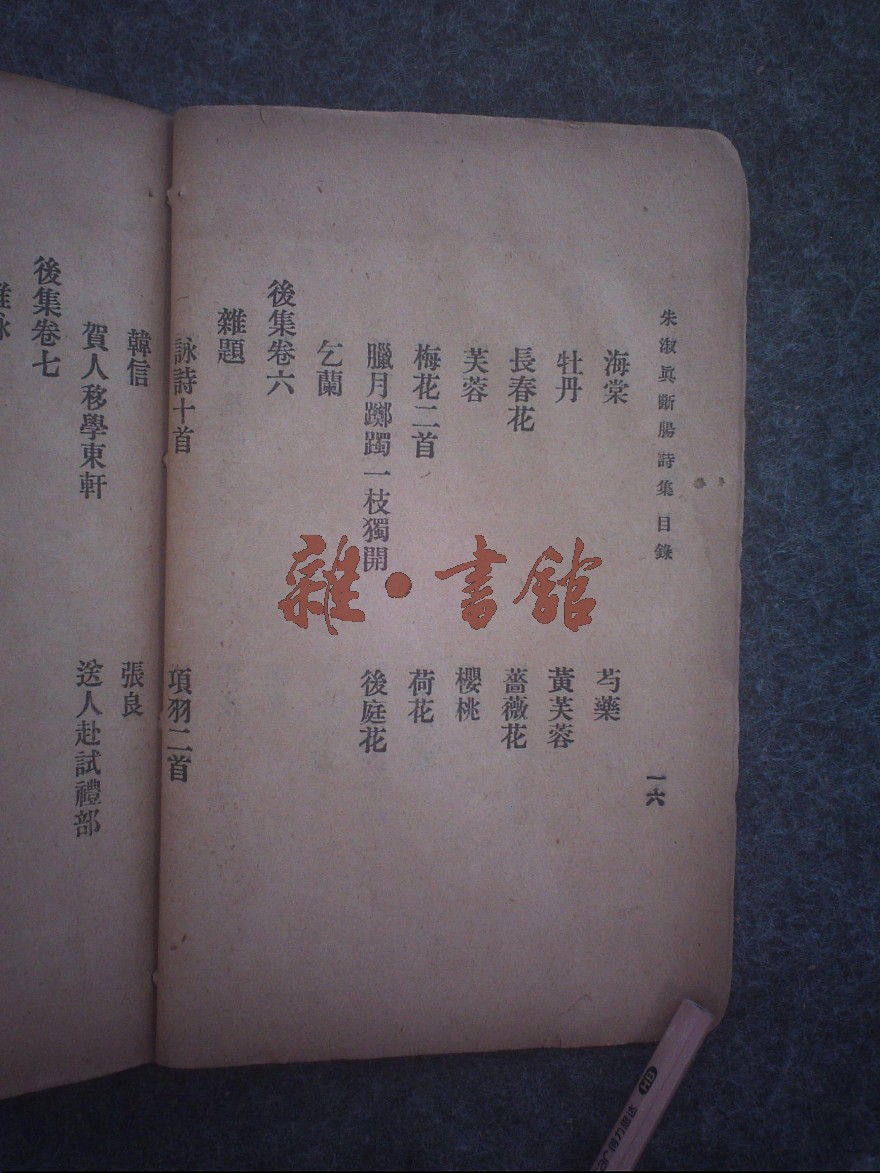 朱淑眞斷腸詩集 目錄
一六
海棠
芍藥
牡丹
黃芙蓉
長春花
薔薇花
芙蓉
櫻桃
梅花二首
荷花
臘月躑躅一枝獨開
後庭花
乞蘭
後集卷六
雜題
詠詩十首
項羽二首
韓信
張良
賀人移學東軒
送人赴試禮部
後集卷七
雜·書館
HB